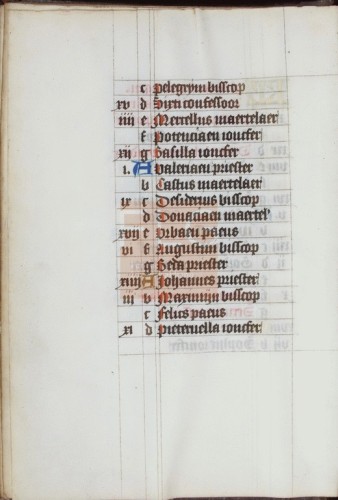 c Pelegrijn bisscop
xv d Siri confessoor
iiii e Mercellus maertelaer
f Potenciaen ioncfer
xij g Basilla ioncfer
i. A Valeriaen priester
b Castus maertelaer
ix c Desiderius bisscop
d Donaciaen maertel'
xvij e Urbaen paeus
vi f Augustijn bisscop
g Beda priester
xiiij A Johannes priester
iii b Maximijn bisscop
c Felics paeus
xi d Pieternella ioncfer